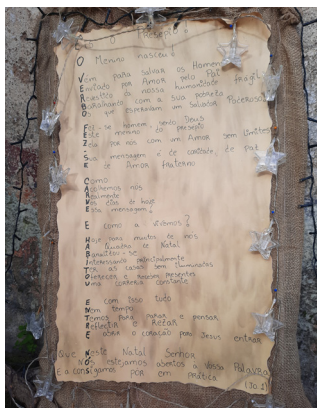 Presépio
O Menino nasceu!
Vem para salvar os Homens
Enviado por Amor pelo Pai
Revestido da nossa humanidade frágil
Baralhando com a sua pobreza
Os que esperavam um Salvador Poderoso!
Fez-se homem, sendo Deus
Este menino do presépio
Zela por nós com um Amor sem limites
Sua mensagem é de caridade, de paz
E de Amor fraterno
Como
Acolhemos nós
Realmente
Nos dias de hoje
Essa mensagem?
E como a vivemos?
Hoje para muitos de nós
A Quadra de Natal
Banalizou-se
Interessando principalmente
Ter as casas bem iluminadas
Oferecer e receber presentes
Uma correria constante
E com isso tudo
Nem tempo
Temos para parar e pensar
Reflectir e Rezar
E abrir o coração para Jesus entrar
Que Neste Natal Senhor
Nós estejamos abertos à Vossa Palavra
E a consigamos pôr em prática
(Jo.1)